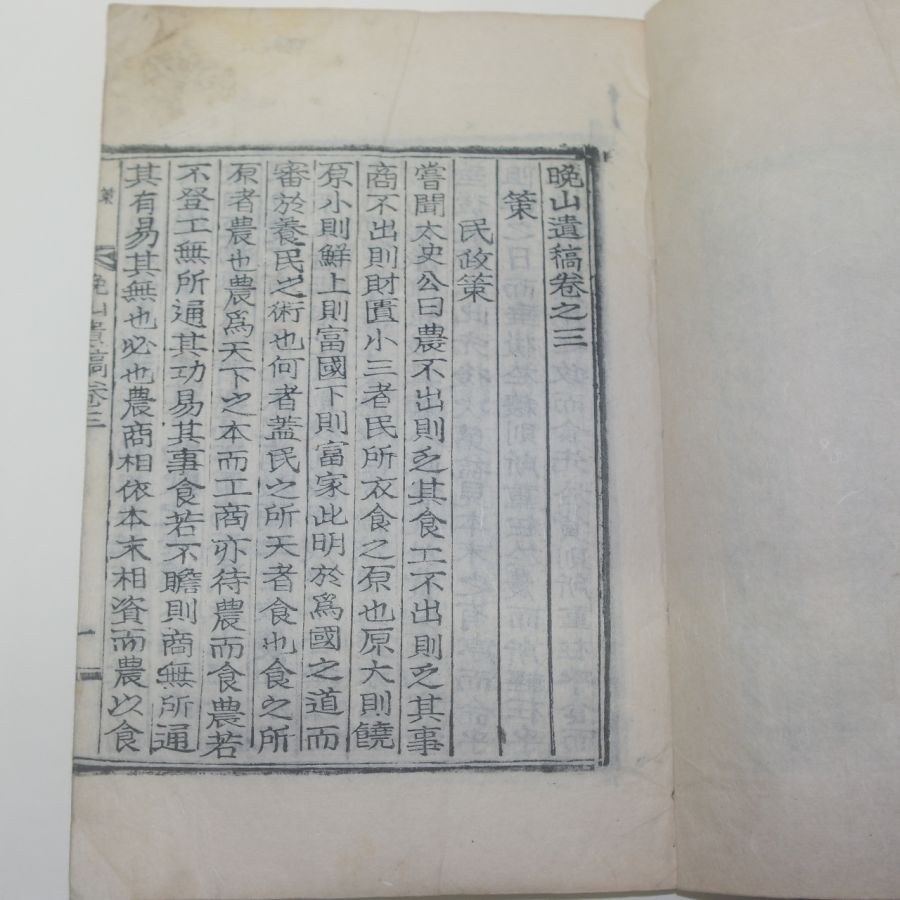 晩山遺稿卷之三
策
民政策
嘗聞太史公曰農不出則乏其食工不出則乏其事
商不出則財匱小三者民所衣食之原也原大則饒
原小則鮮上則富國下則富家此明於爲國之道而
審於養民之術也何者蓋民之所天者食也食之所
原者農也農爲天下之本而工商亦待農而食農若
不登工無所通其功易其事食若不贍則商無所通
其有易其無也必也農商相依本末相資而農以食
策
晩山遺稿卷三
一